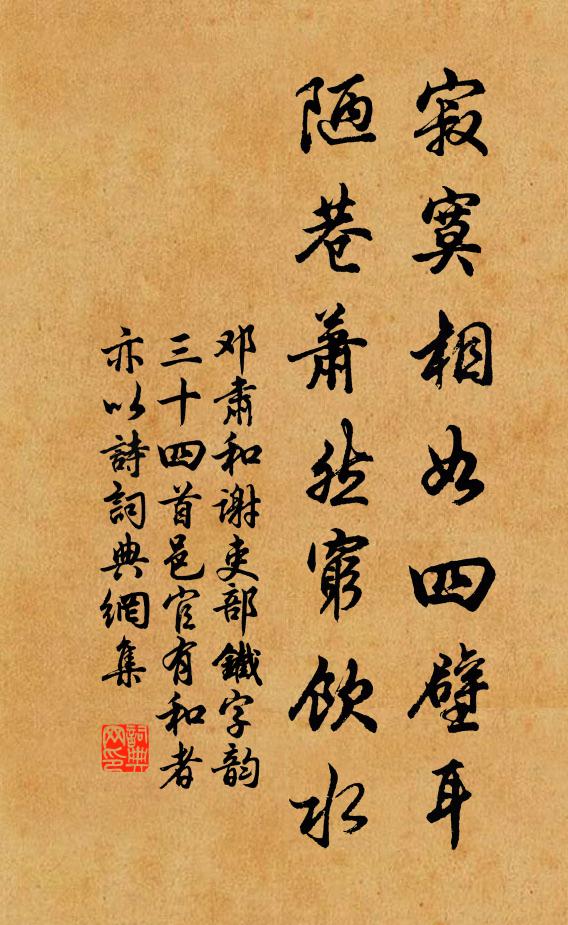 寂寞相如四壁耳
陋巷萧然穷飲水
邓肅和谢吏部鐵字韵
三十四首邑官有和者
亦以詩詞典網集
詞典网印